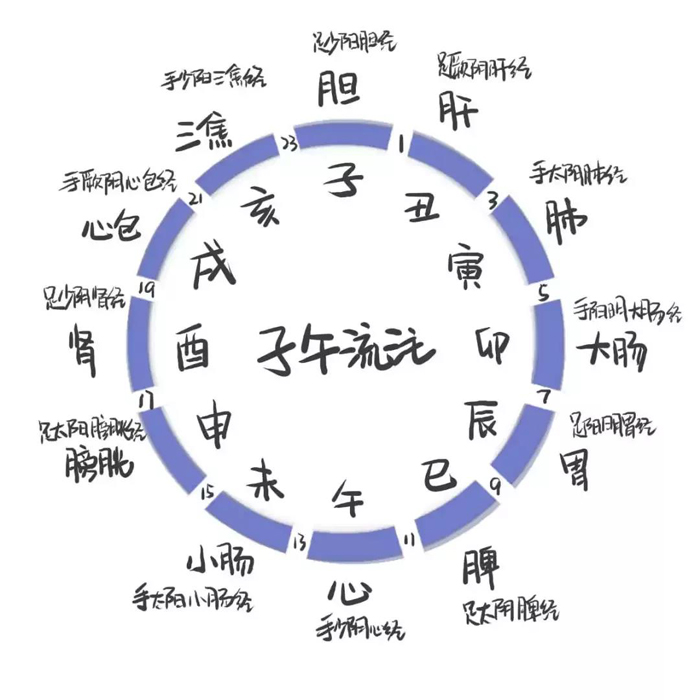 足少阳胆经
胆
足厥阴肝经
肝
手太阴肺经
肺
手阳明大肠经
大肠
足阳明胃经
胃
足太阴脾经
脾
心
手少阴心经
小肠
手太阳小肠经
足太阳膀胱经
膀胱
足少阴肾经
肾
手厥阴心包经
心包
手少阳三焦经
三焦
23
1
3
5
7
9
11
13
15
17
19
21
子
丑
寅
卯
辰
巳
午
未
申
酉
戌
亥
子午流注